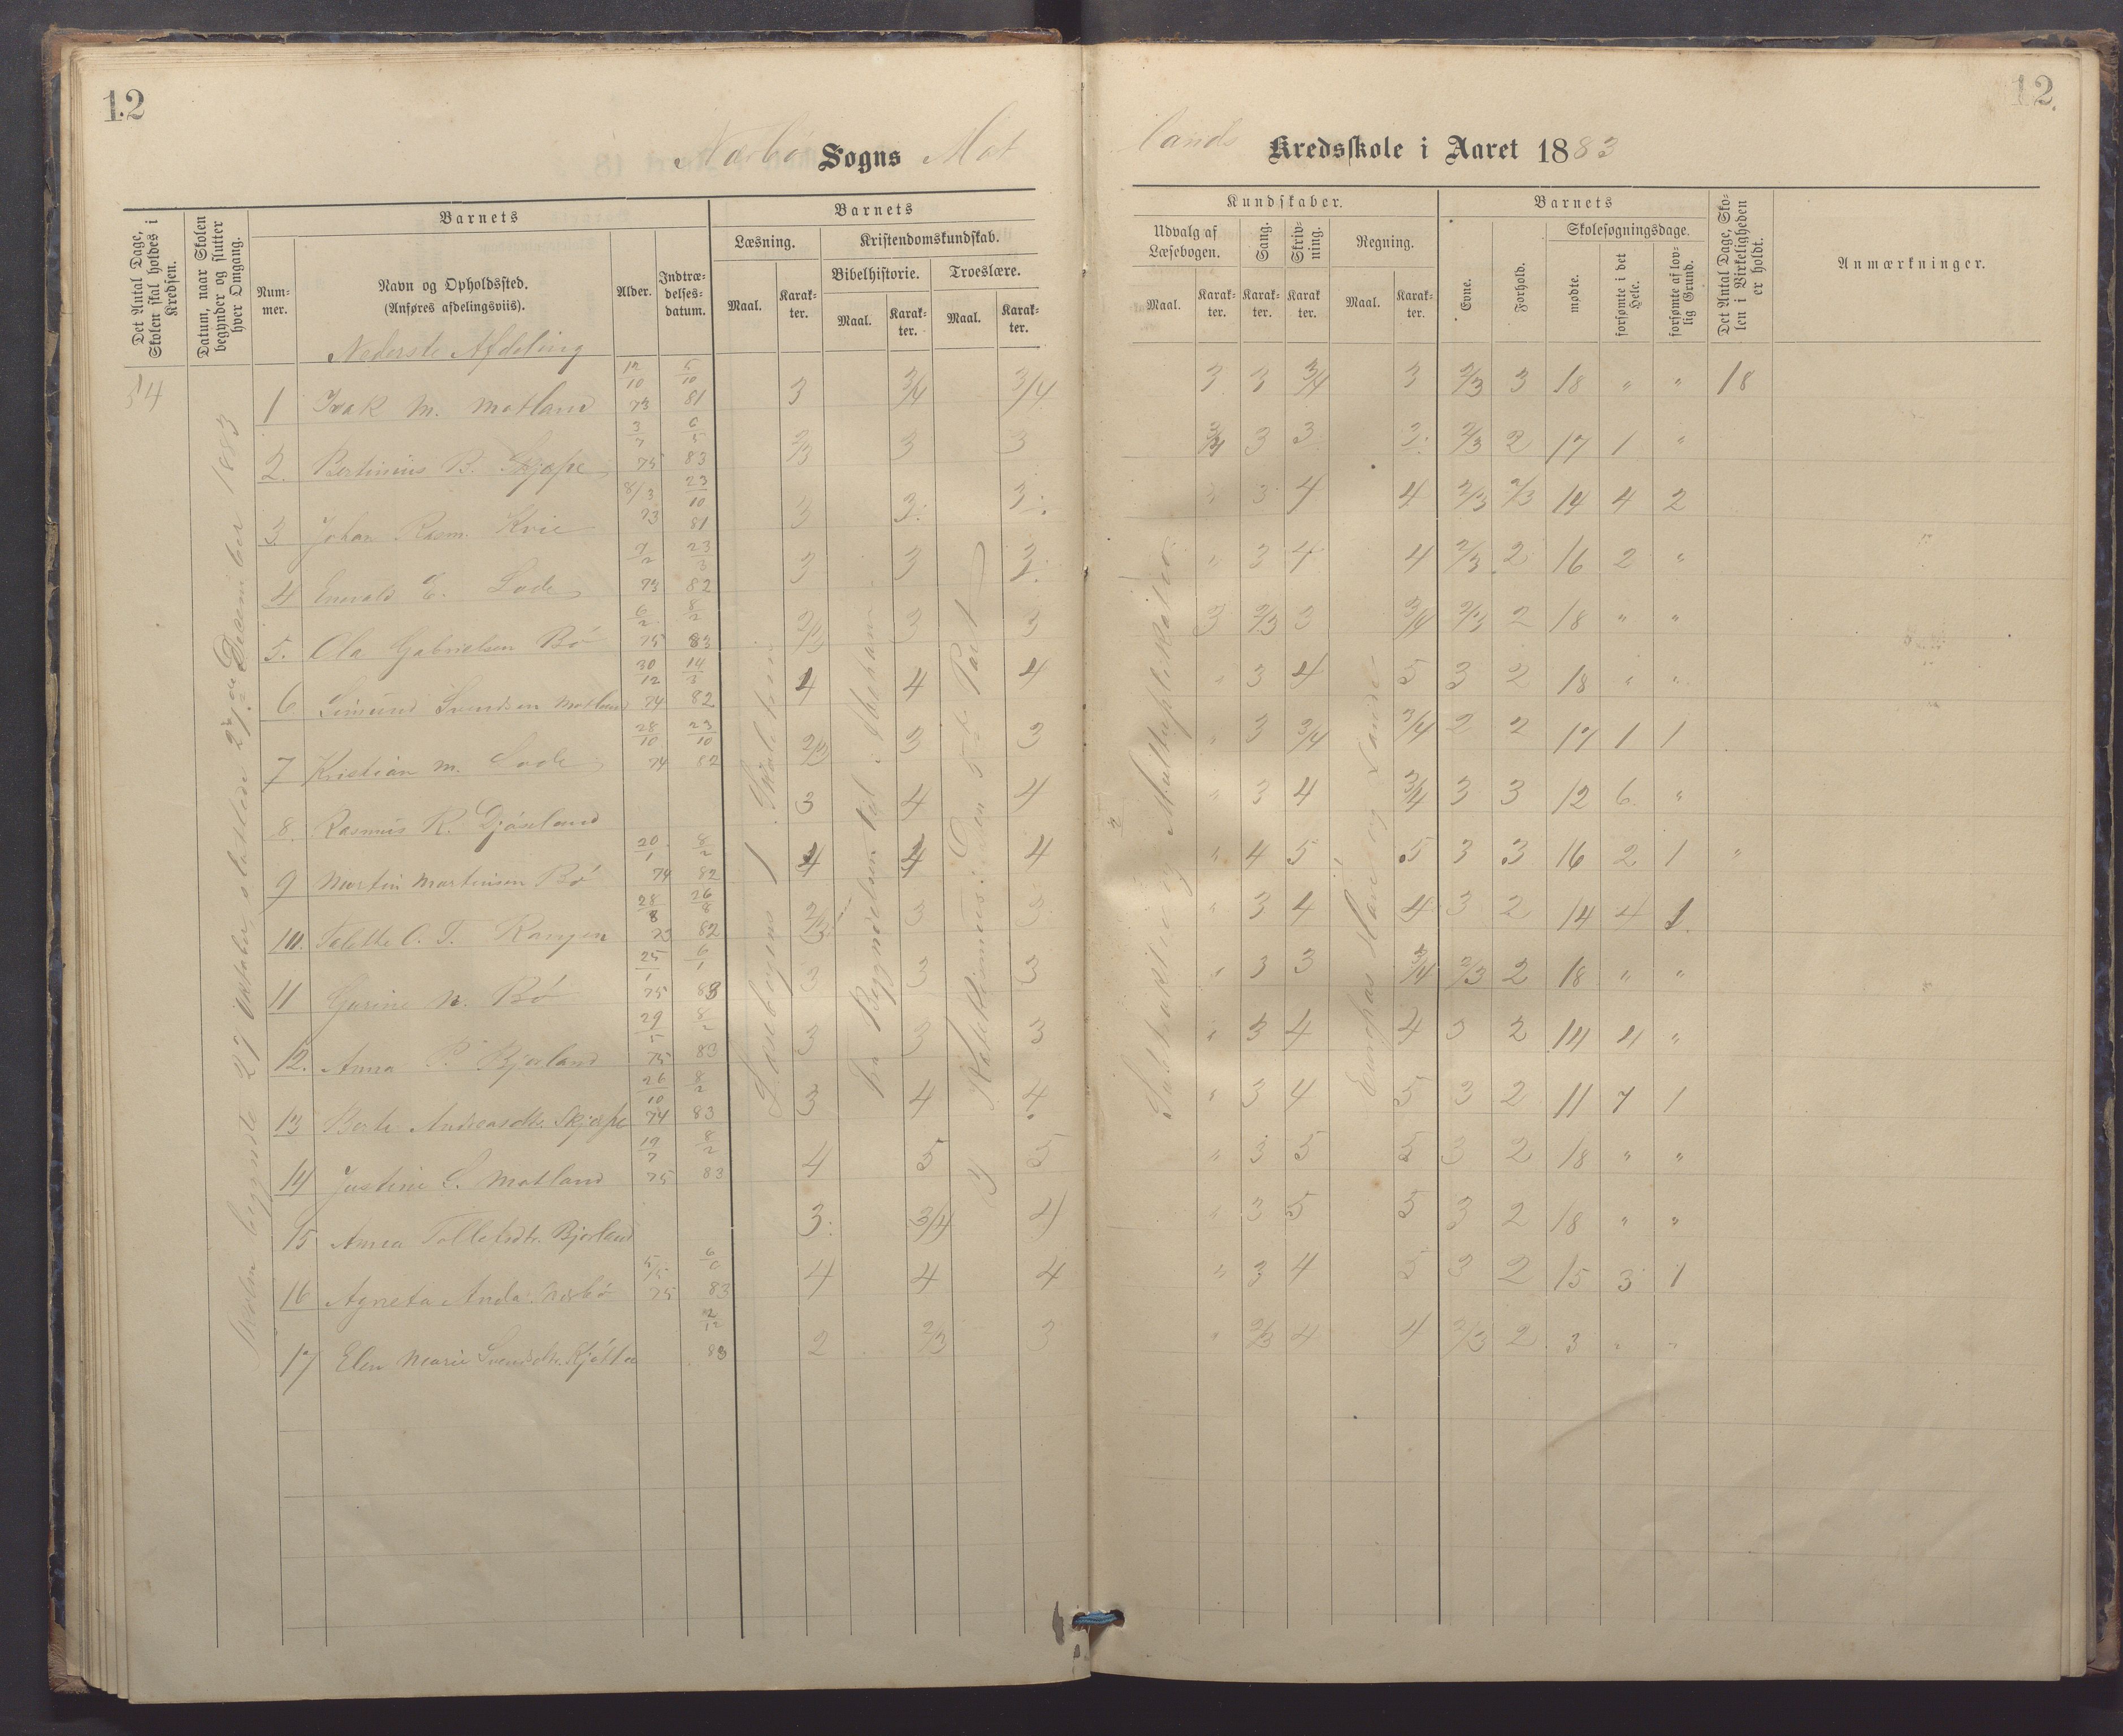 12
12.
Nærbø Sogns Mat
lands Kredsskole i Aaret 1883
Det Antal Dage, Skolen skal holdes i Kredsen.
Datum, naar Skolen begynder og slutter hver Omgang.
Barnets
Nummer.
Navn og Opholdssted.
(Anføres afdelingsviis).
Alder.
Indtrædelsesdatum.
Barnets
Læsning.
Kristendomskundskab.
Bibelhistorie.
Troeslære.
Maal.
Karakter.
Maal.
Karakter.
Maal.
Karakter.
Kundskaber.
Udvalg af Læsebogen.
Sang.
Skrivning.
Regning.
Maal.
Karakter.
Karakter.
Karakter
Maal.
Karakter.
Barnets
Evne.
Forhold.
Skolesøgningsdage.
mødte.
forsømte i det Hele.
forsømte af lovlig Grund.
Det Antal Dage, Skolen i Virkeligheden er holdt.
Anmærkninger.
Nederste Afdeling
54
1 Isak M. Motland 12/10 73 5/10 81 3 3/4 3/4 3 3 3/4 3 2/3 3 18 " " 18
2. Bertinius B. Skjæpe 3/7 75 6/5 83 2/3 3 3 3/4 3 3 3. 2/3 2 17 1 "
3. Johan Rasm. Kvie 8/3 73 23/10 81 3 3. 3. " 3 4 4 2/3 2/3 14 4 2
4 Enevald E. Lode 7/2 73 23/3 82 3 3 3. " 3 4 4 2/3 2 16 2 "
5. Ola Gabrielsen Bø 6/2 75 8/2 83 2/3 3 3 3 2/3 3 3/4 2/3 2 18 " "
6 Simund Svendsen Motland 30/12 74 14/3 82 4 4 4 " 3 4 5 3 2 18 " "
7 Kristian M. Lode 28/10 74 23/10 82 2/3 3 3 " 3 3/4 3/4 2 2 17 1 1
8. Rasmus R. 3 4 4 " 3 4 3/4 3 3 12 6 "
9 Martin Martinsen Bø 20/1 74 8/2 82 4 4 4 " 4 5 5 3 3 16 2 1 "
10. Talette O. T. 28/8 73 26/8 82 2/3 3 3 " 3 4 4 3 2 14 4 1.
11 Gurine N. Bø 25/1 75 6/1 83 3 3 3 " 3 3 3/4 2/3 2 18 " "
12. Anna P. Bjorland 29/5 75 8/2 83 3 3 3 " 3 4 4 3 2 14 4 "
13 Berte Andreasdtr. Skjæpe 26/10 74 8/2 83 3 4 4. " 3 4 5 3 2 11 7 1
14 Justine S. Motland 19/7 75 8/2 83 4 5 5 " 3 5 5 3 2 18 " "
15 Anna Tolleivdtr. Bjorland 3. 3/4 4 " 3 5 5 3 2 18 " "
16 Agneta Anda Nærbø 5/5 75 83 4 4 4 " 3 4 5 3 2 15 3 1
17 Elen Marie Svendsdtr. 2/12 83 2 2/3 3 " 2/3 4 4 2/3 2 3 " "
Skolen begyndte 27 Oktober, sluttede 27de December 1883
Læsebogens 1 Skoletrin
Fra Begyndelsen til Abraham
Katekismus: Den 5te Part
Subtraktion og Multiplikation
Europas Have og Lande